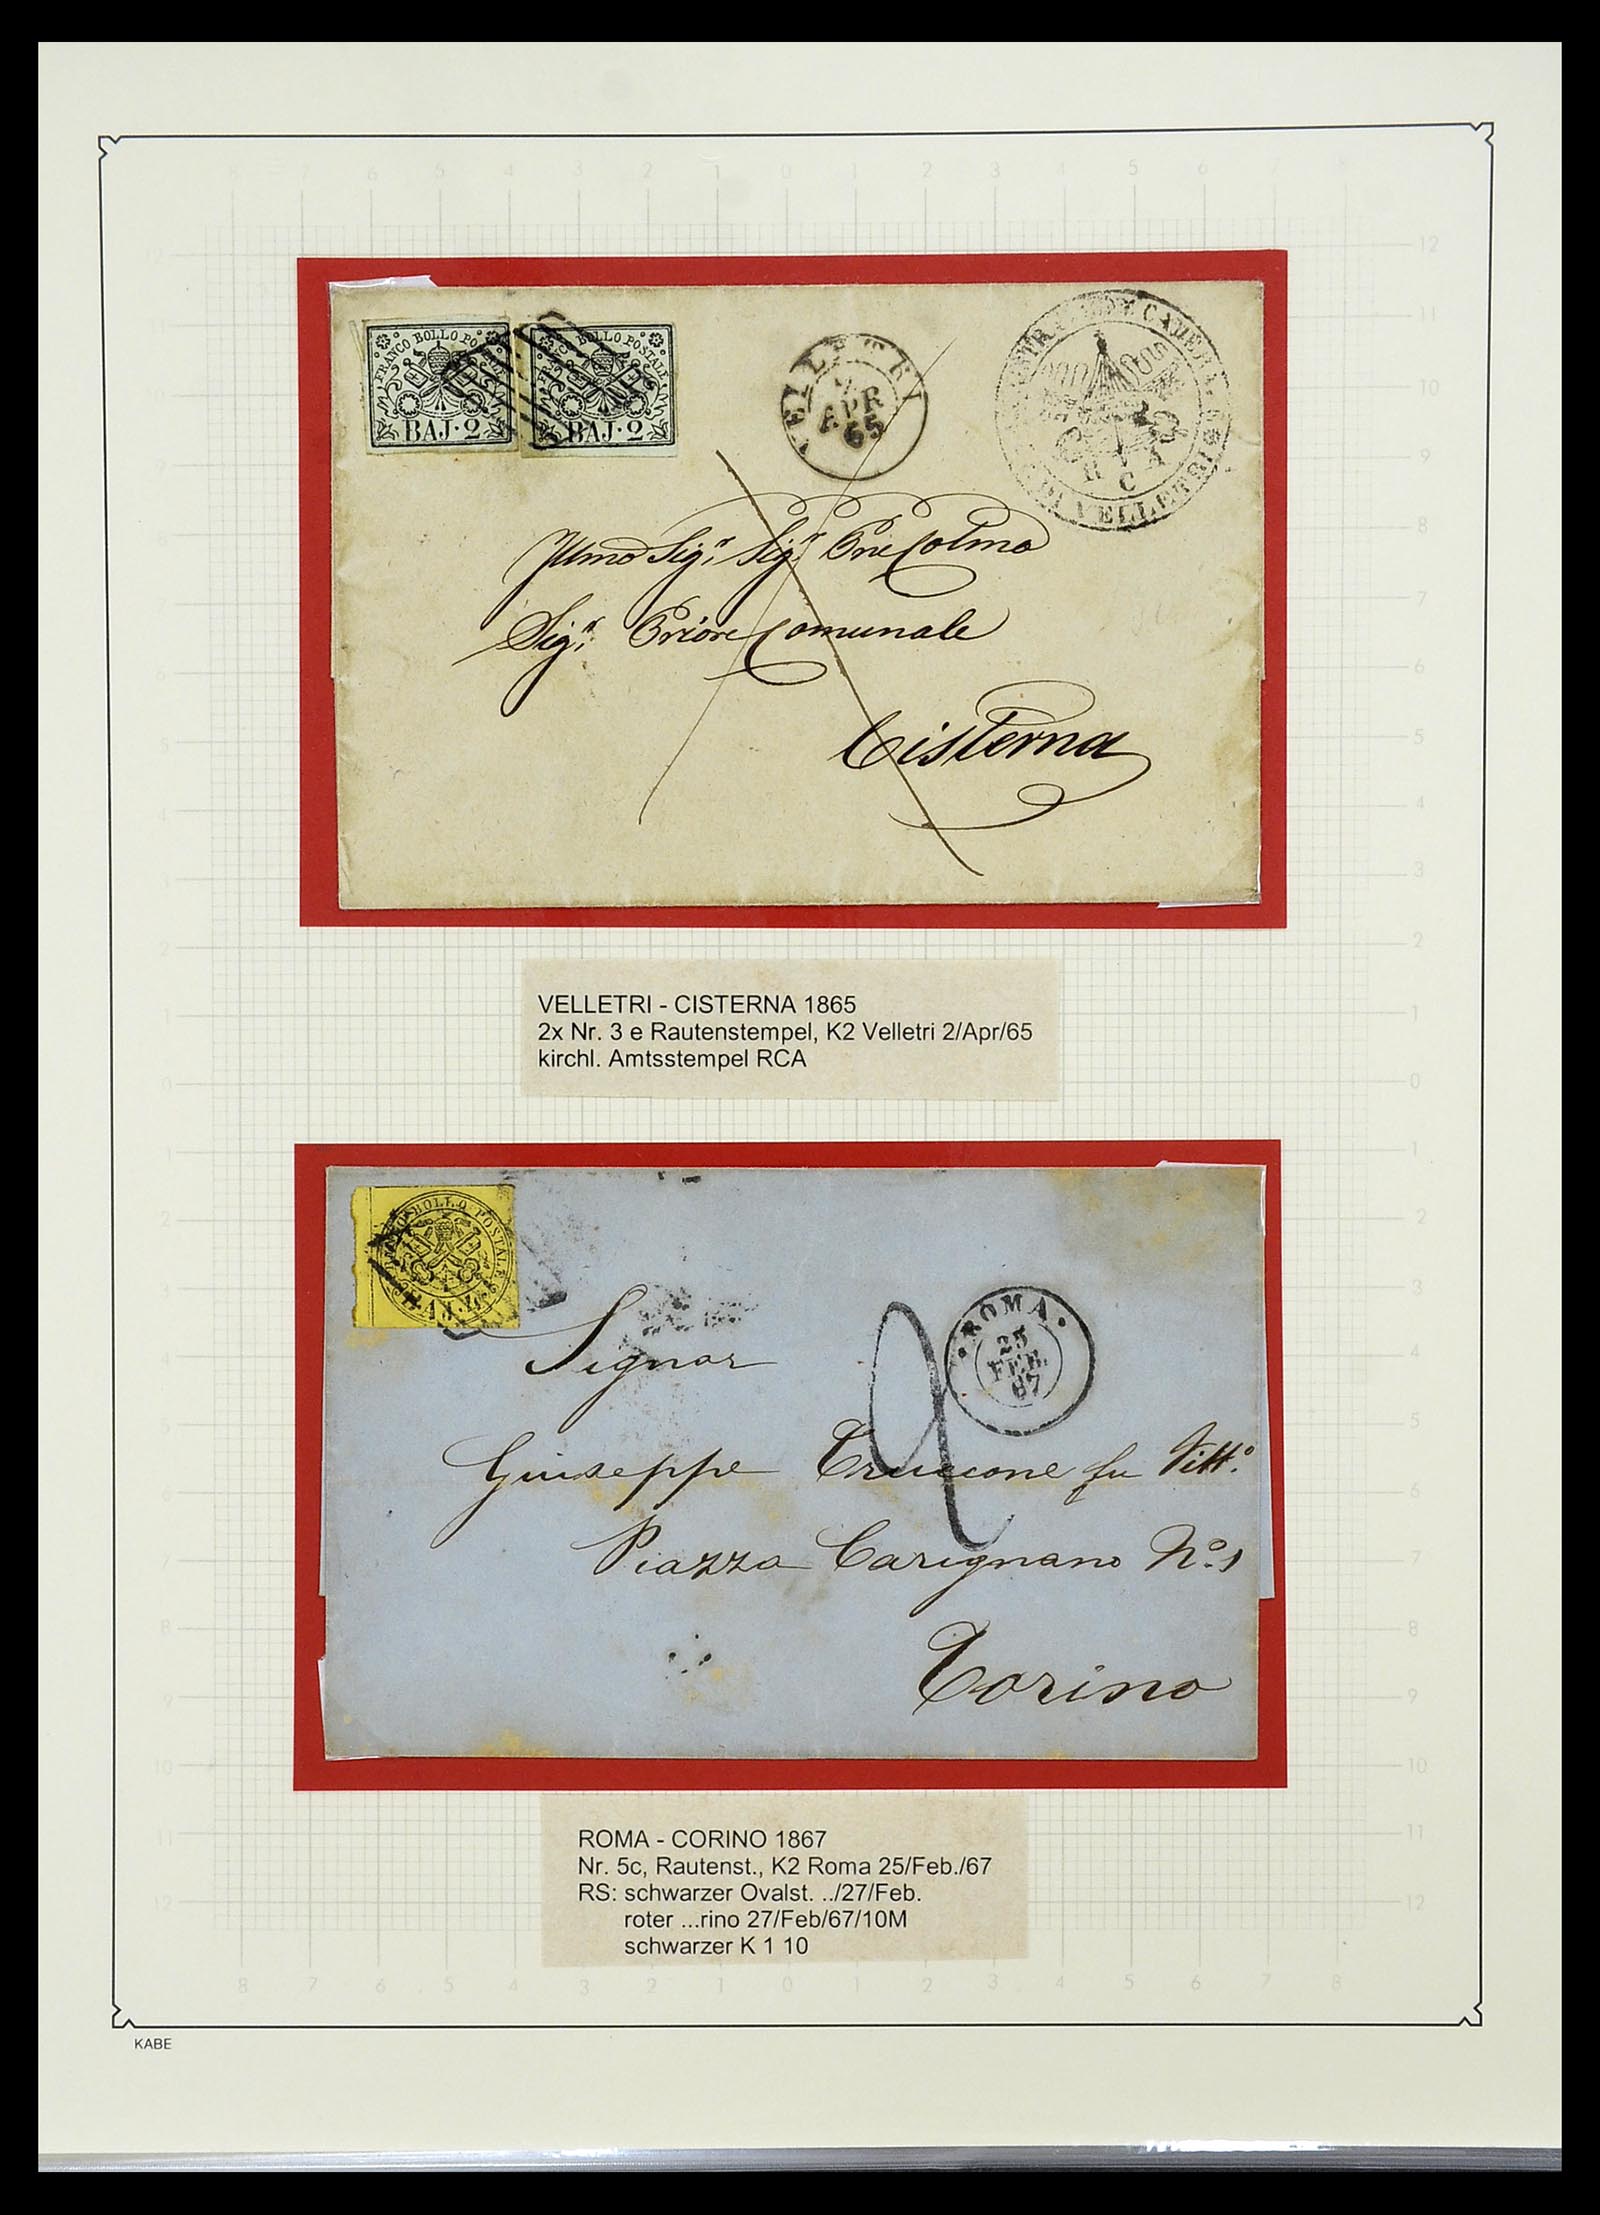 8 7 6 5 4 3 2 1 0 1 2 3 4 5 6 7 8
FRANCO BOLLO POSTALE
BAJ·2
FRANCO BOLLO POSTALE
BAJ·2
VELLETRI
2
APR
65
R C A
DI VELLETRI
Illmo Sigr. Sigr.
Sigr. Priore Comunale
Cisterna
VELLETRI - CISTERNA 1865
2x Nr. 3 e Rautenstempel, K2 Velletri 2/Apr/65
kirchl. Amtsstempel RCA
BOLLO POSTALE
ROMA
25
FEB.
67
2
Signor
Giuseppe Truccone fu Vitto.
Piazza Carignano No. 1
Torino
ROMA - CORINO 1867
Nr. 5c, Rautenst., K2 Roma 25/Feb./67
RS: schwarzer Ovalst. ../27/Feb.
roter ...rino 27/Feb/67/10M
schwarzer K 1 10
8 7 6 5 4 3 2 1 0 1 2 3 4 5 6 7 8
KABE